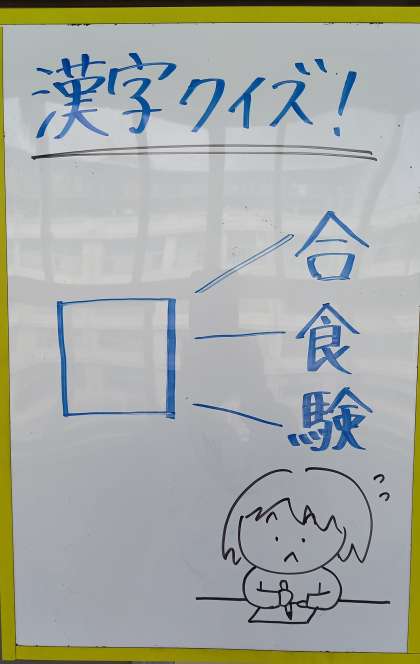 漢字クイズ!
合
食
験